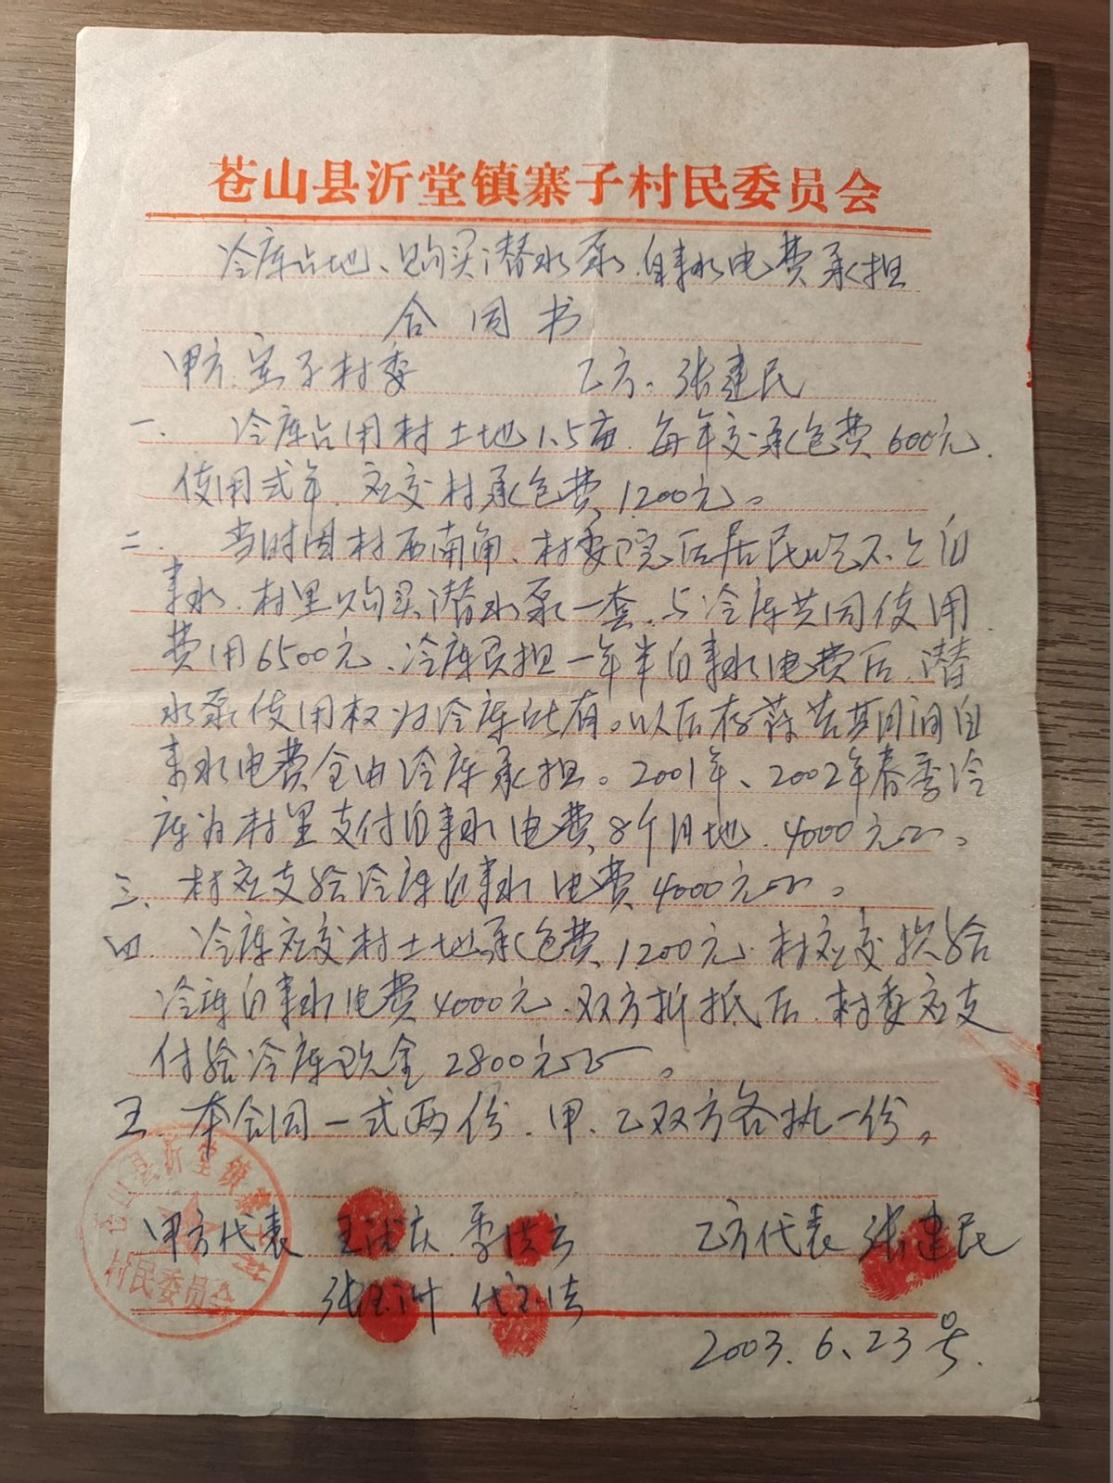 苍山县沂堂镇寨子村民委员会
冷库占地、购买潜水泵、自来水电费承担
合同书
甲方:寨子村委 乙方:张建民
一、冷库占用村土地1.5亩,每年交承包费600元,
使用弍年,应交村承包费1200元。
二、当时因村西南角、村委院后居民吃不上自
来水,村里购买潜水泵一套,与冷库共同使用,
费用6500元,冷库负担一年半自来水电费后,潜
水泵使用权归冷库所有。以后存蒜苔期间自
来水电费全由冷库承担。2001年、2002年春季冷
库为村里支付自来水电费8个月地,4000元正。
三、村应支给冷库自来水电费4000元正。
四、冷库应交村土地承包费1200元,村应交给
冷库自来水电费4000元,双方折抵后,村委应支
付给冷库现金2800元正。
五、本合同一式两份,甲、乙双方各执一份。
甲方代表 王 庆 季洪 乙方代表 张建民
张玉 代玉
2003.6.23号.
苍山县沂堂镇寨子村
村民委员会